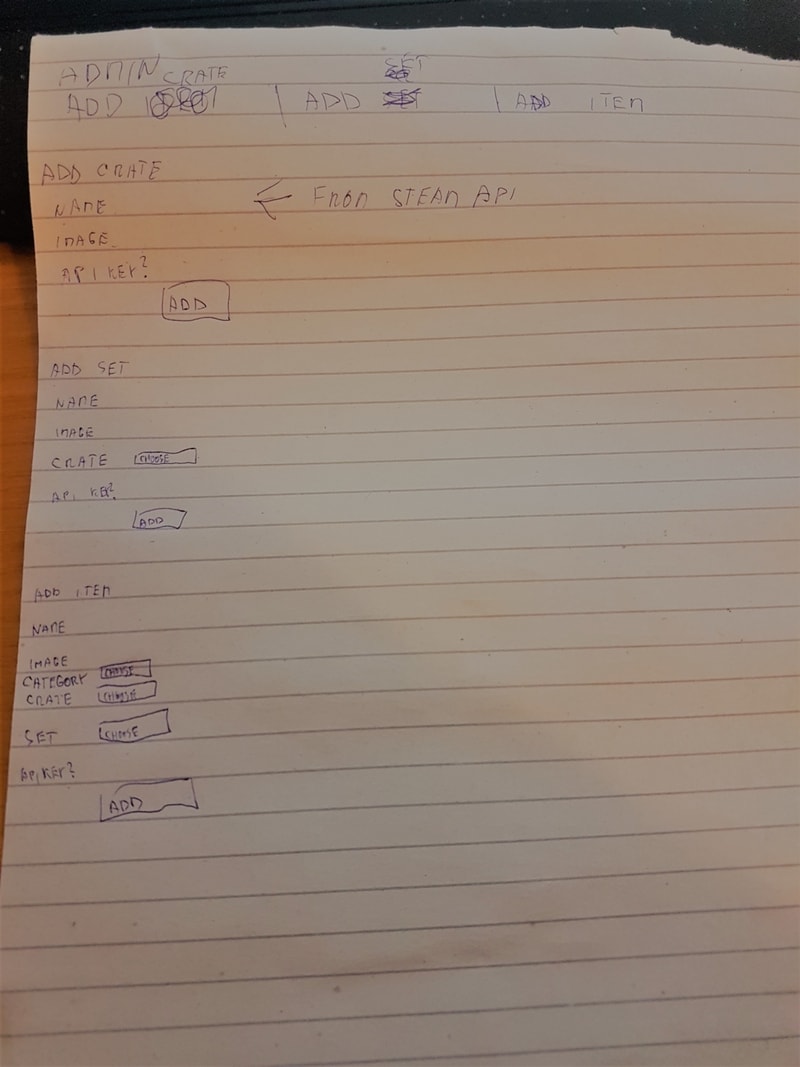 ADMIN CRATE SET
ADD | ADD | ADD ITEM
ADD CRATE
NAME ← FROM STEAM API
IMAGE
API KEY?
ADD
ADD SET
NAME
IMAGE
CRATE CHOOSE
API KEY?
ADD
ADD ITEM
NAME
IMAGE
CATEGORY CHOOSE
CRATE CHOOSE
SET CHOOSE
API KEY?
ADD